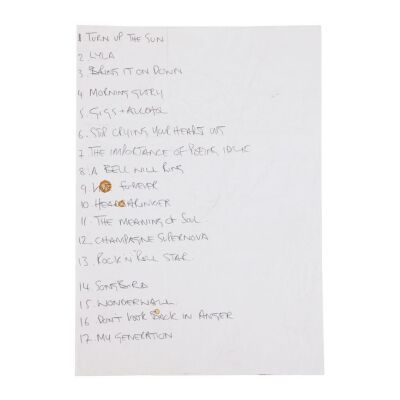 1 TURN UP THE SUN
2 LYLA
3 BRING IT ON DOWN
4 MORNING GLORY
5 CIGS + ALCOHOL
6. STOP CRYING YOUR HEART OUT
7 THE IMPORTANCE OF BEING IDLE
8. A BELL WILL RING
9. FOREVER
10 HEADSHRINKER
11 THE MEANING OF SOUL
12. CHAMPAGNE SUPERNOVA
13. ROCK 'N' ROLL STAR
14. SONGBIRD
15 WONDERWALL
16 DON'T LOOK BACK IN ANGER
17 MY GENERATION